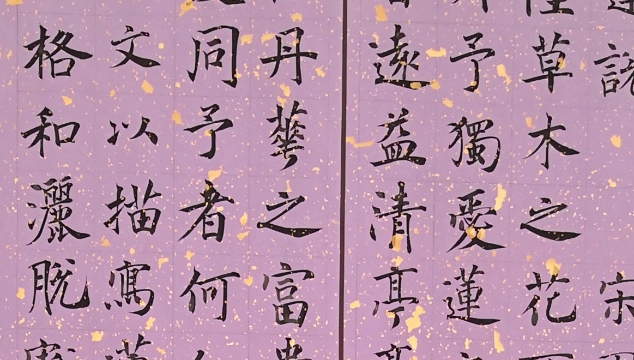 說宋
草木之花
予獨愛蓮
遠益清亭
丹華之富
同予者何
文以描寫
格和灑脫